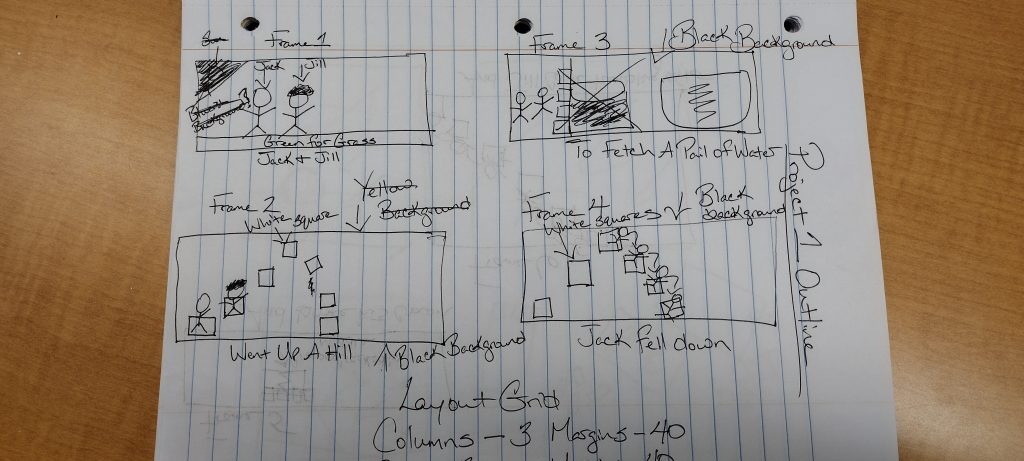 Frame 1
Jack
Jill
Background
Green for Grass
Jack + Jill
Frame 3
Black Background
To Fetch A Pail of Water
Frame 2
White square
Yellow
Background
Went Up A Hill
Black Background
Frame 4
White squares
Black
background
Jack fell down
Project 1 Outline
Layout Grid
Columns - 3 Margins - 40